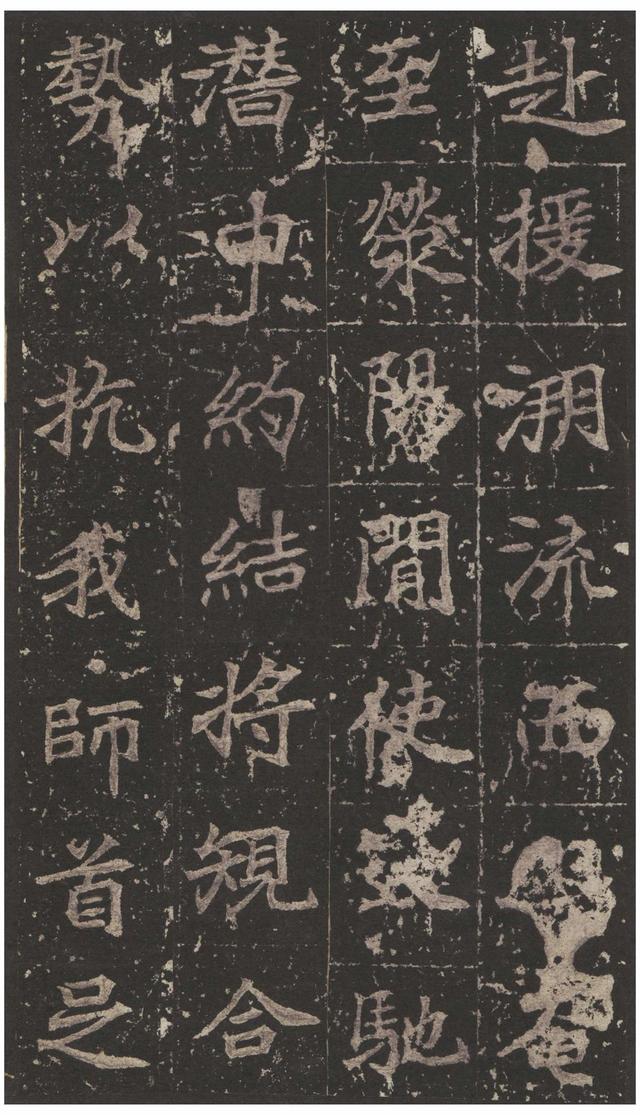 赴援流西奄
至滎陽間使馳
潛申約結將規合
勢以抗我師首足